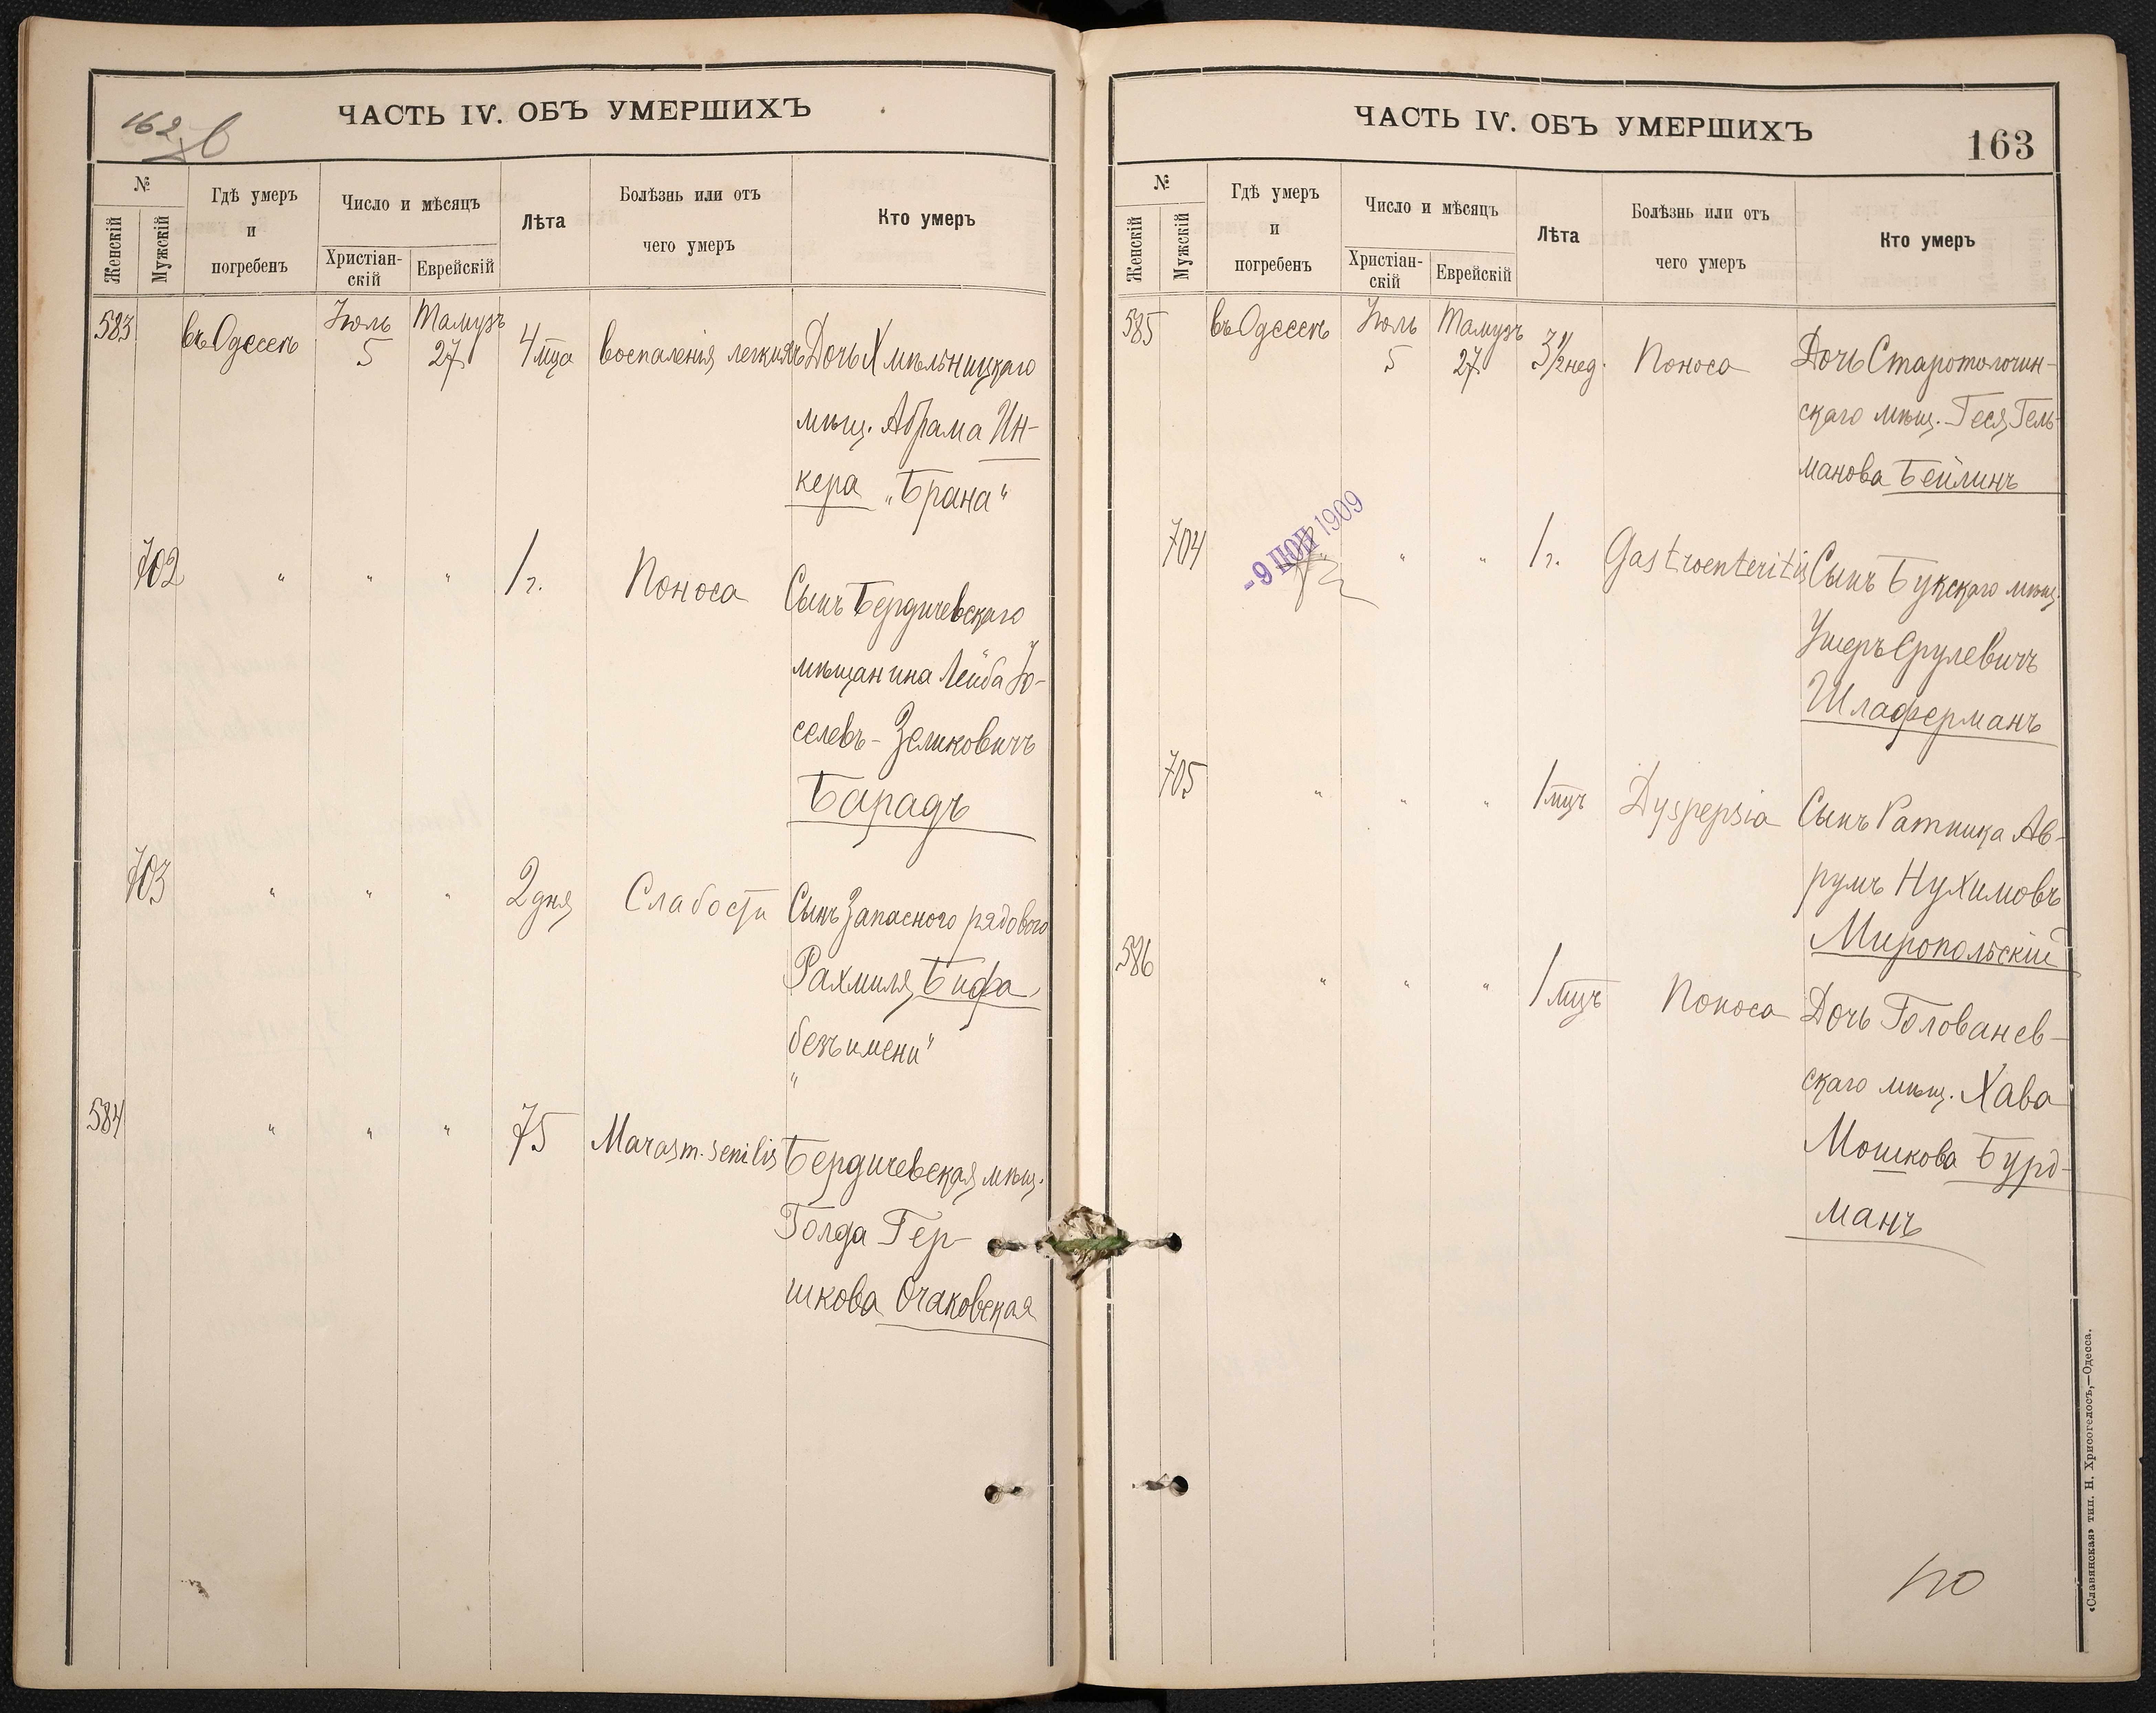 162 в
ЧАСТЬ IV. ОБЪ УМЕРШИХЪ
№
Женскій
Мужскій
Гдѣ умеръ
и
погребенъ
Число и мѣсяцъ
Христіан-
скій
Еврейскій
Лѣта
Болѣзнь или отъ
чего умеръ
Кто умеръ
583 въ Одессѣ Іюль 5 Тамузъ 27 4 мца воспаленія легкихъ Дочь Хмѣльницкаго
мѣщ. Абрама Ин-
кера „Брана“
702 " " " 1 г. Поноса Сынъ Бердичевскаго
мѣщанина Лейба Іо-
селевъ-Зеликовичъ
Барадъ
703 " " " 2 дня Слабости Сынъ Запаснаго рядового
Рахмиля Бифа,
„безъ имени“
584 " " " 75 Marasm. senilis Бердичевская мѣщ.
Голда Гер-
шкова Очаковская
ЧАСТЬ IV. ОБЪ УМЕРШИХЪ
163
№
Женскій
Мужскій
Гдѣ умеръ
и
погребенъ
Число и мѣсяцъ
Христіан-
скій
Еврейскій
Лѣта
Болѣзнь или отъ
чего умеръ
Кто умеръ
585 въ Одессѣ Іюль 5 Тамузъ 27 3 1/2 нед. Поноса Дочь Старотолочин-
скаго мѣщ. Геся Гель-
манова Бейлинъ
-9 ІЮЛ 1909
704 " " " 1 г. Gastroenteritis Сынъ Букскаго мѣщ.
Ушеръ Срулевичъ
Шлаферманъ
705 " " " 1 мцъ Dyspepsia Сынъ Ратника Ав-
румъ Нухимовъ
Миропольскій
586 " " " 1 мцъ Поноса Дочь Голованев-
скаго мѣщ. Хава
Мошкова Бурд-
манъ
«Славянская» тип. Н. Хрисогелосъ,—Одесса.